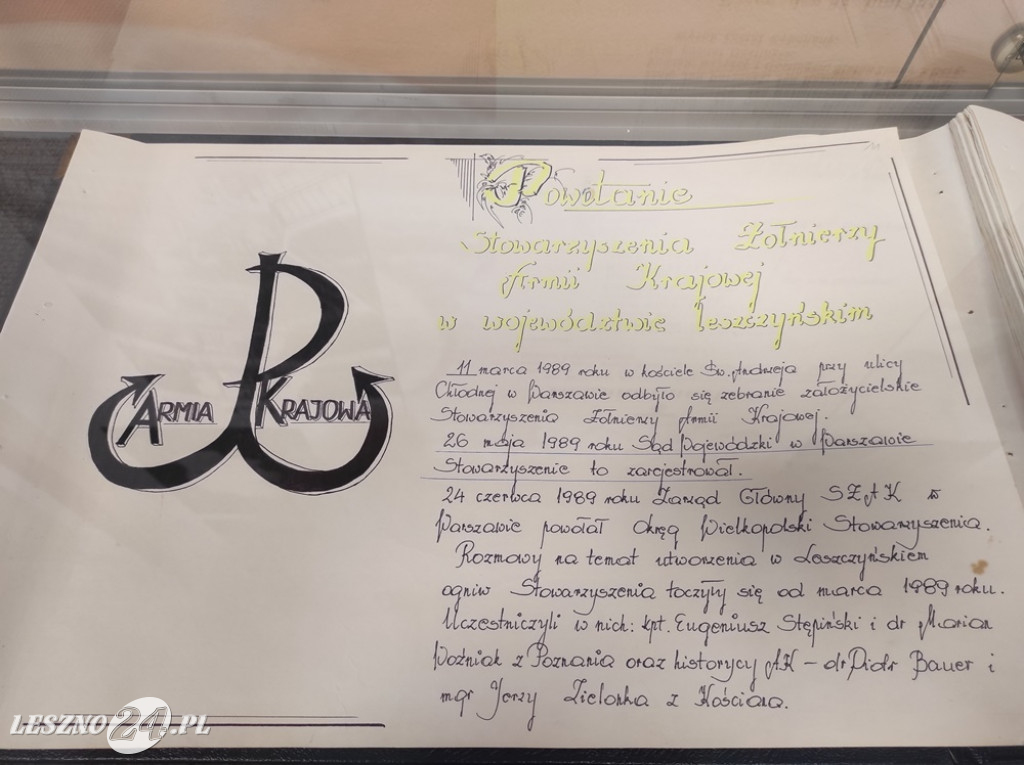 Powołanie
Stowarzyszenia Żołnierzy
Armii Krajowej
w województwie leszczyńskim
ARMIA KRAJOWA
11 marca 1989 roku w kościele Św. Andrzeja przy ulicy
Chłodnej w Warszawie odbyło się zebranie założycielskie
Stowarzyszenia Żołnierzy Armii Krajowej.
26 maja 1989 roku Sąd Wojewódzki w Warszawie
Stowarzyszenie to zarejestrował.
24 czerwca 1989 roku Zarząd Główny SŻAK w
Warszawie powołał Okręg Wielkopolski Stowarzyszenia.
Rozmowy na temat utworzenia w Leszczyńskiem
ogniw Stowarzyszenia toczyły się od marca 1989 roku.
Uczestniczyli w nich: kpt. Eugeniusz Stępiński i dr Marian
Woźniak z Poznania oraz historycy AK – dr Piotr Bauer i
mgr Jerzy Zielonka z Kościana.
LESZNO24.PL